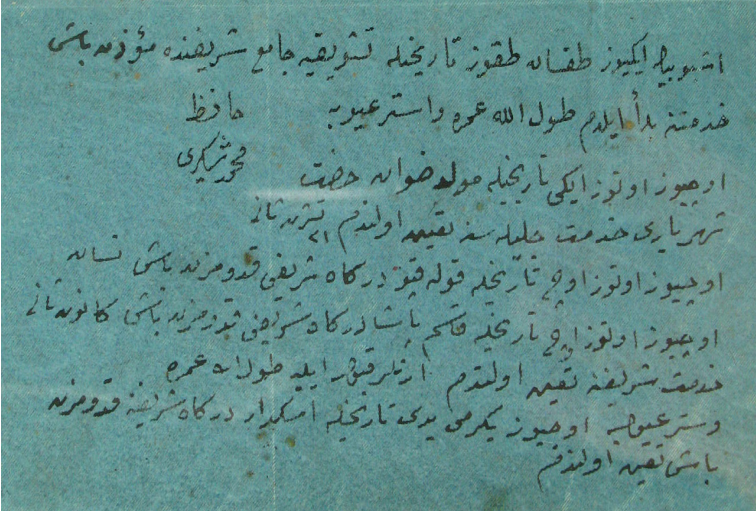 اشبو بيك ايكيوز طقسان طقوز تاريخنده تشويقيه جامع شريفنده مؤذن باشی
خدمتنه بدأ ايلدم طول الله عمره واستر عيوبه
حافظ
محمد شكری
اوچيوز اوتوز ايكی تاريخنده مولدخوان حضرت
شهرياری خدمت جليله سنه تعيين اولندم ٢١ تشرين ثانی
اوچيوز اوتوز اوچ تاريخنده قوله قپو درگاه شريفی قدومزن باشی نيسان
اوچيوز اوتوز اوچ تاريخنده قاسم پاشا درگاه شريفی قدومزن باشی كانون ثانی
خدمت شريفنه تعيين اولندم ايليه طول الله عمره
وستر عيوبه اوچيوز يكرمی يدی تاريخنده اسكدار درگاه شريفنه قدومزن
باشی تعيين اولندم